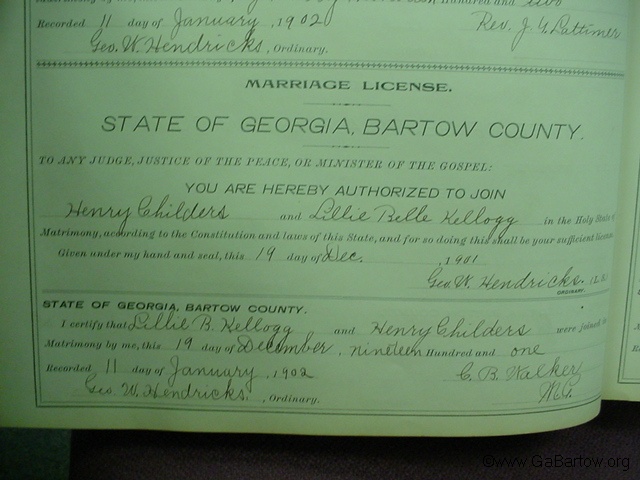 Hundred and two
Recorded 11 day of January, 1902 Rev. J. G. Lattimer
Geo. W. Hendricks, Ordinary.
MARRIAGE LICENSE.
STATE OF GEORGIA, BARTOW COUNTY.
TO ANY JUDGE, JUSTICE OF THE PEACE, OR MINISTER OF THE GOSPEL:
YOU ARE HEREBY AUTHORIZED TO JOIN
Henry Childers and Lillie Belle Kellogg in the Holy State of
Matrimony, according to the Constitution and laws of this State, and for so doing this shall be your sufficient license.
Given under my hand and seal, this 19 day of Dec. , 1901
Geo. W. Hendricks. (L.S.)
ORDINARY.
STATE OF GEORGIA, BARTOW COUNTY.
I certify that Lillie B. Kellogg and Henry Childers were joined in
Matrimony by me, this 19 day of December, nineteen Hundred and one
Recorded 11 day of January, 1902 C. B. Walker,
Geo. W. Hendricks. , Ordinary. M.G.
©www.GaBartow.org